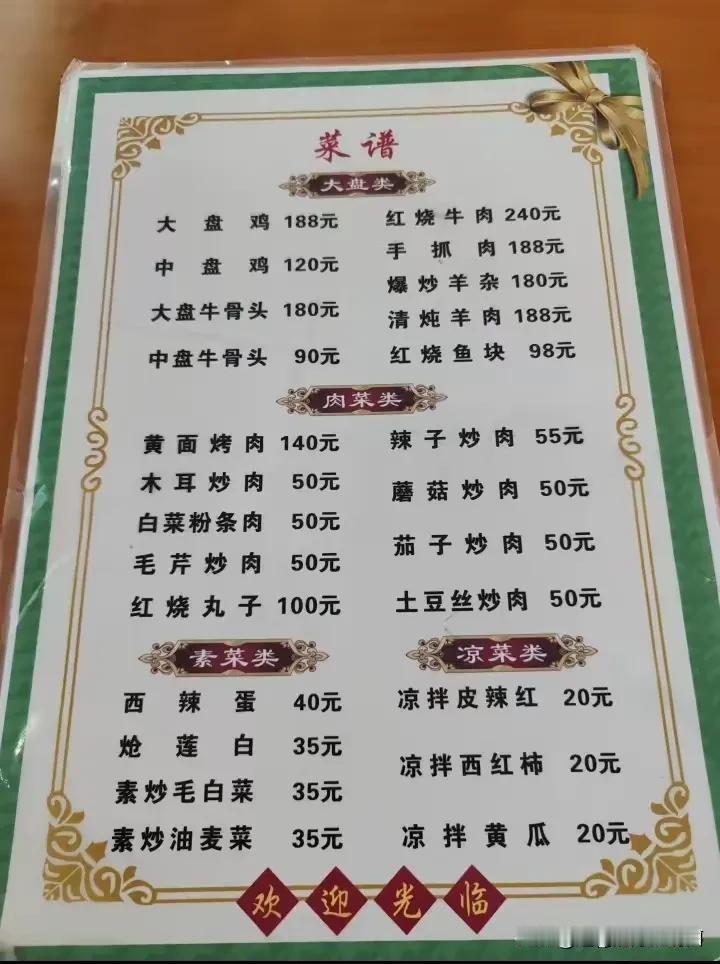 菜谱
大盘类
大盘鸡 188元
中盘鸡 120元
大盘牛骨头 180元
中盘牛骨头 90元
红烧牛肉 240元
手抓肉 188元
爆炒羊杂 180元
清炖羊肉 188元
红烧鱼块 98元
肉菜类
黄面烤肉 140元
木耳炒肉 50元
白菜粉条肉 50元
毛芹炒肉 50元
红烧丸子 100元
辣子炒肉 55元
蘑菇炒肉 50元
茄子炒肉 50元
土豆丝炒肉 50元
素菜类
西辣蛋 40元
炝莲白 35元
素炒毛白菜 35元
素炒油麦菜 35元
凉菜类
凉拌皮辣红 20元
凉拌西红柿 20元
凉拌黄瓜 20元
欢迎光临